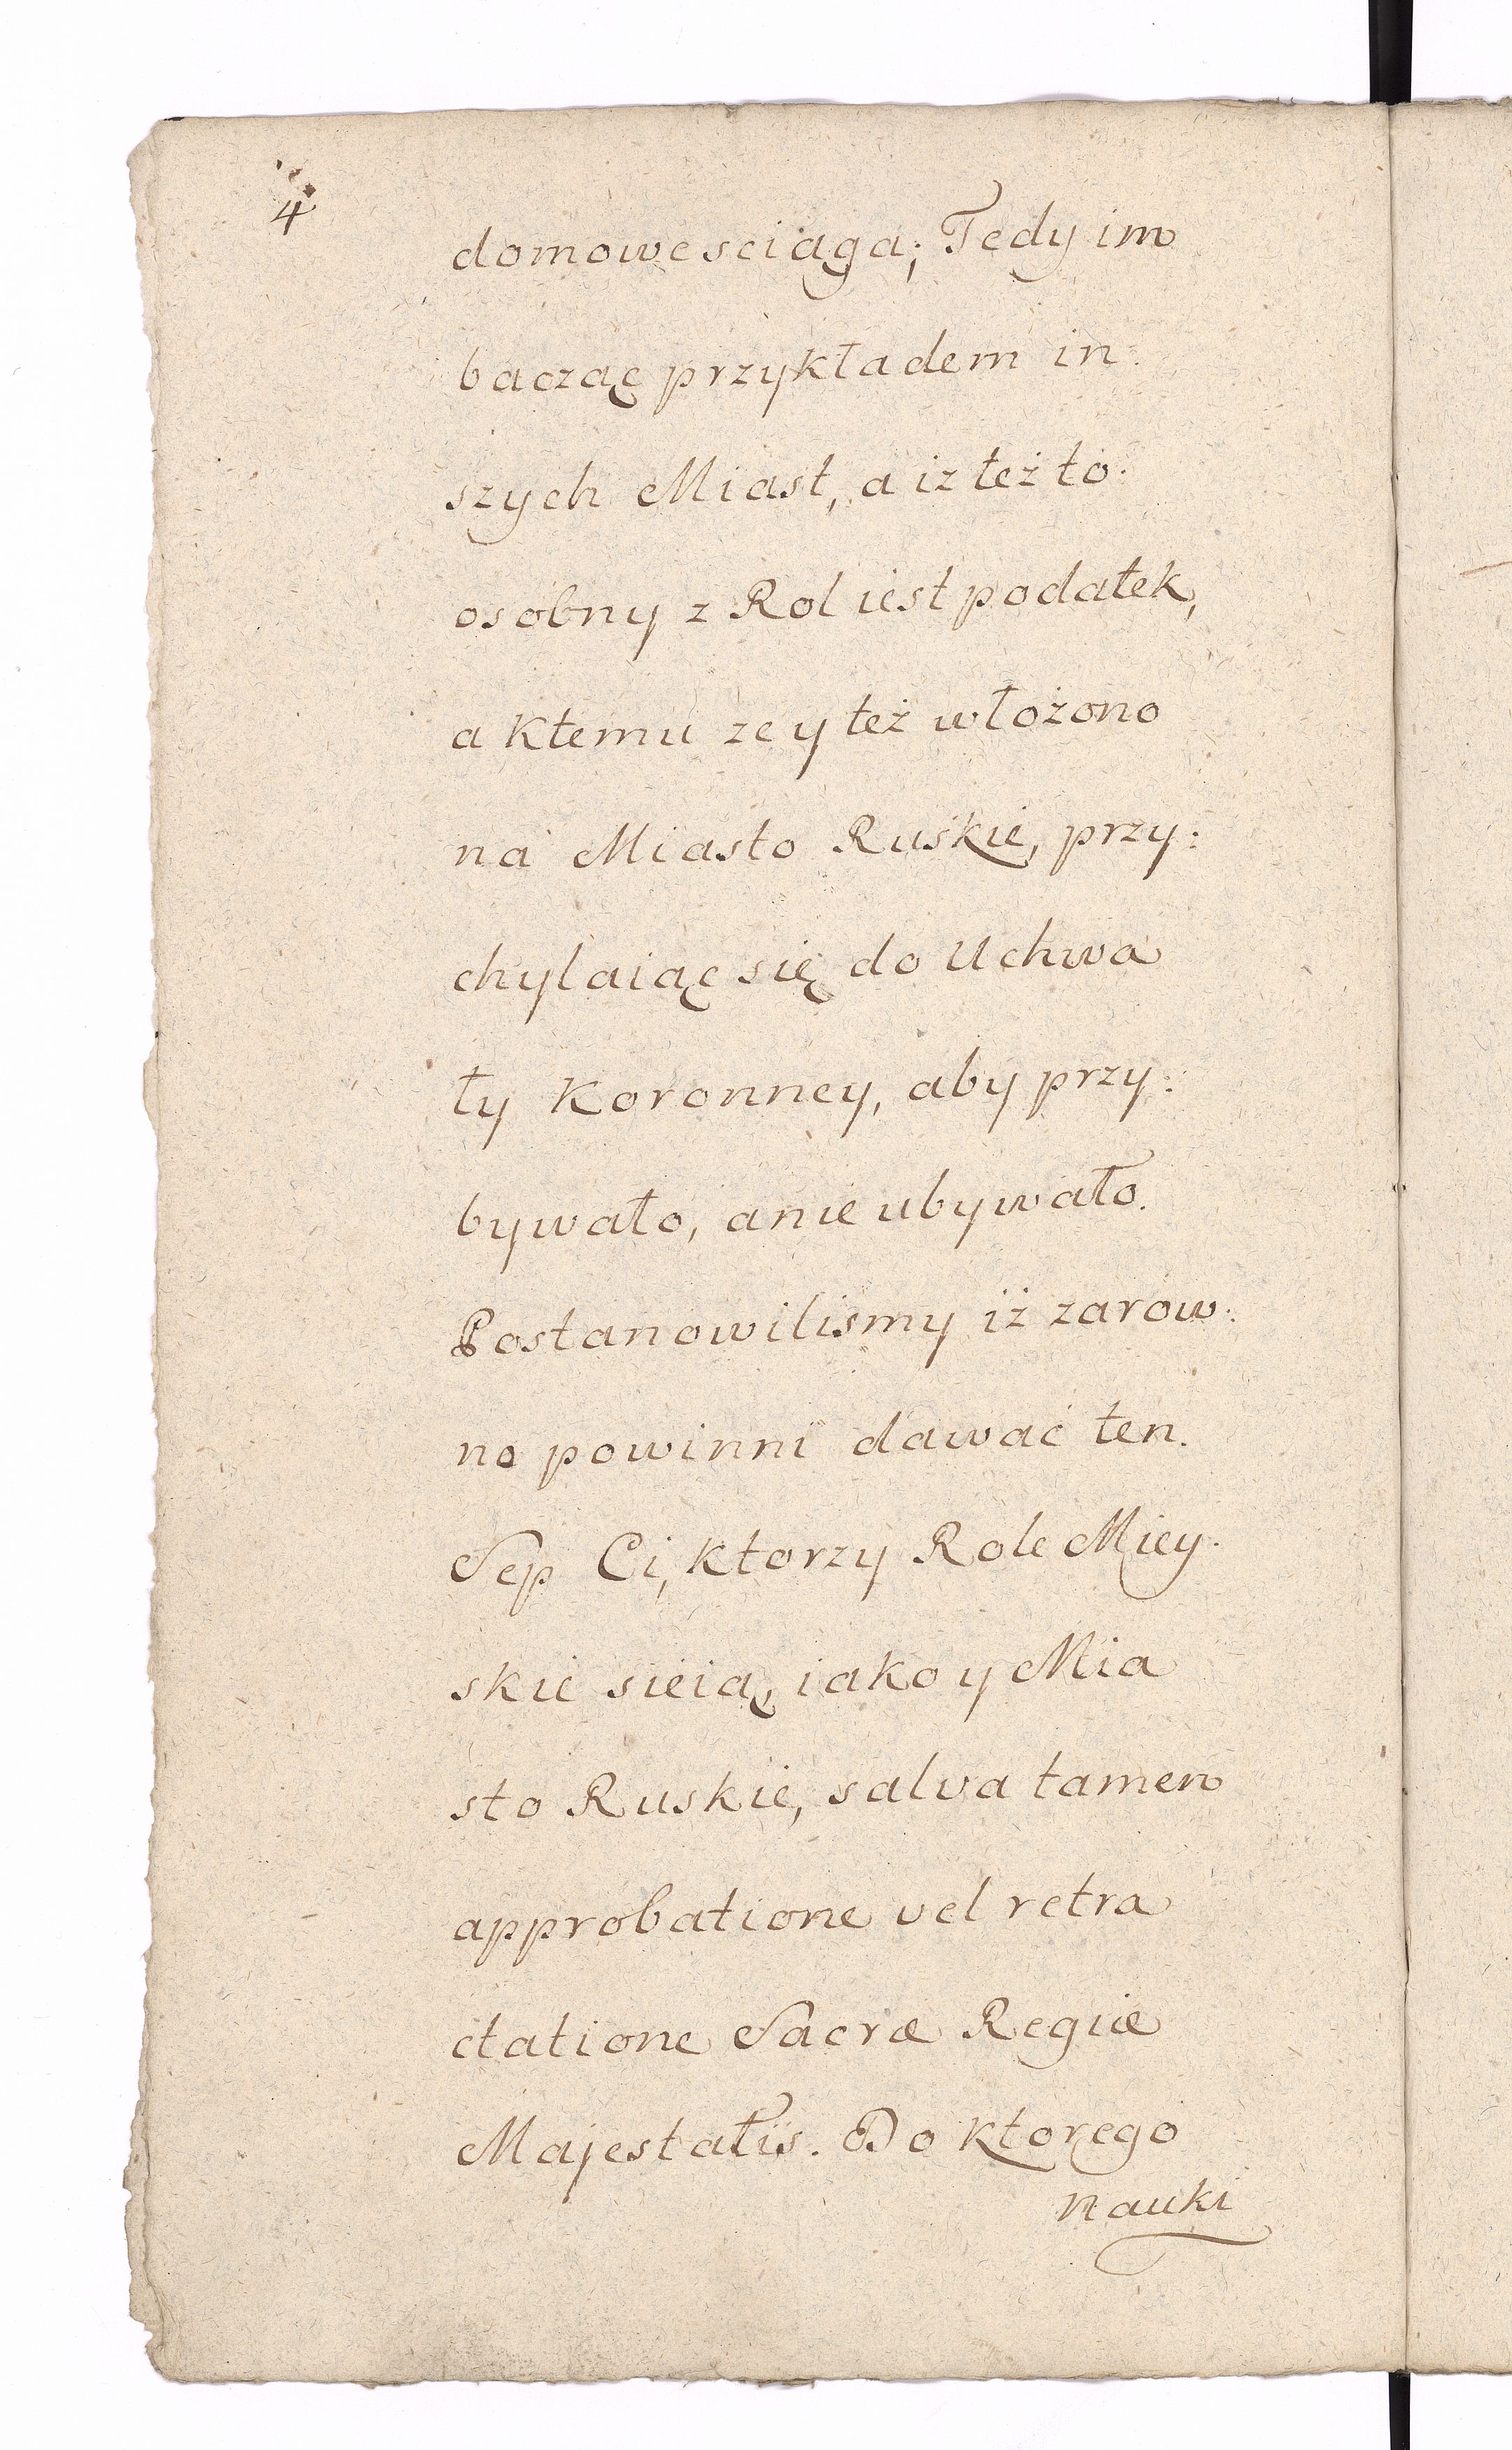 4
domowe sciąga; Tedy im
bacząc przykładem in.
szych Miast, a iz też to.
osobny z Rol iest podatek,
a Ktemu ze y też włożono
na Miasto Ruskie, przy:
chylaiąc się do Uchwa
ły Koronney, aby przy:
bywało, a nie ubywało.
Postanowilismy iż zarow:
no powinni dawać ten.
Sep Ci, Ktorzy Role Miey.
skie sieią, iako y Mia
sto Ruskie, salva tamen
approbatione vel retra
ctatione Sacræ Regiæ
Majestatis. Do Ktorego
nauki